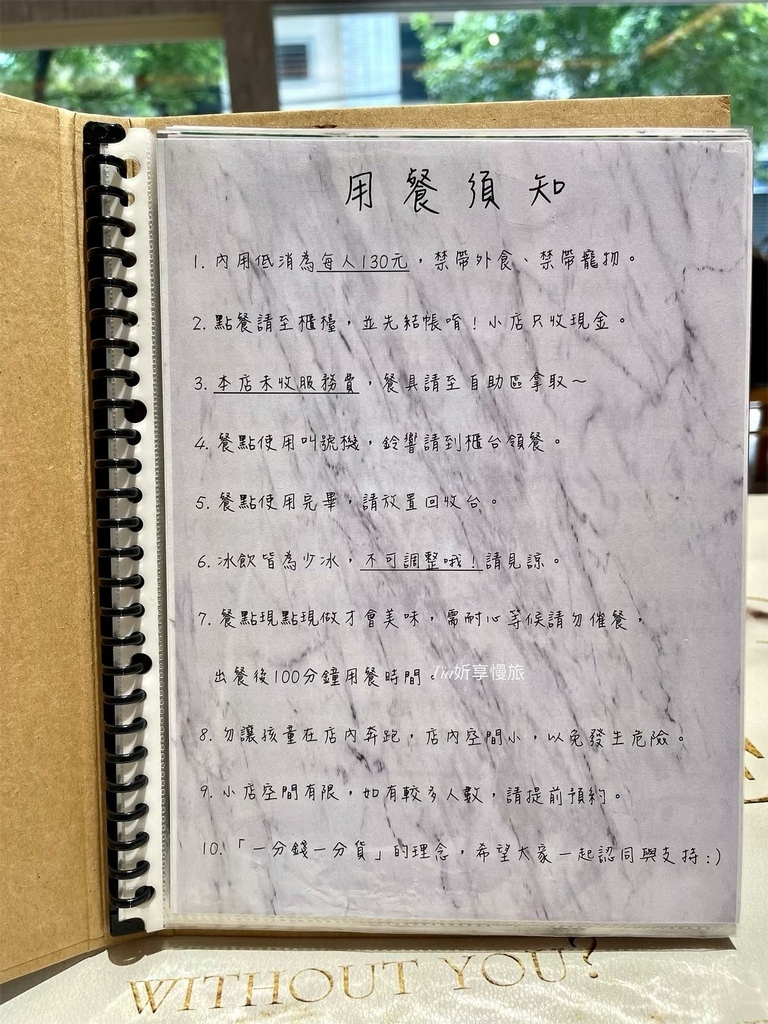 用餐須知
1. 內用低消為每人130元，禁帶外食、禁帶寵物。
2. 點餐請至櫃檯，並先結帳唷！小店只收現金。
3. 本店未收服務費，餐具請至自助區拿取～
4. 餐點使用叫號機，鈴響請到櫃台領餐。
5. 餐點使用完畢，請放置回收台。
6. 冰飲皆為少冰，不可調整哦！請見諒。
7. 餐點現點現做才會美味，需耐心等候請勿催餐，
出餐後100分鐘用餐時間。
妡享慢旅
8. 勿讓孩童在店內奔跑，店內空間小，以免發生危險。
9. 小店空間有限，如有較多人數，請提前預約。
10.「一分錢一分貨」的理念，希望大家一起認同與支持:)
WITHOUT YOU?